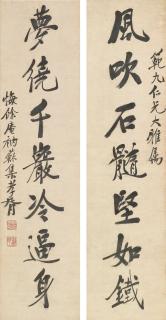 範九仁兄大雅屬
風吹石髓堅如鐵
夢繞千巖冷逼身
悔餘庵衲蘇集辛楣